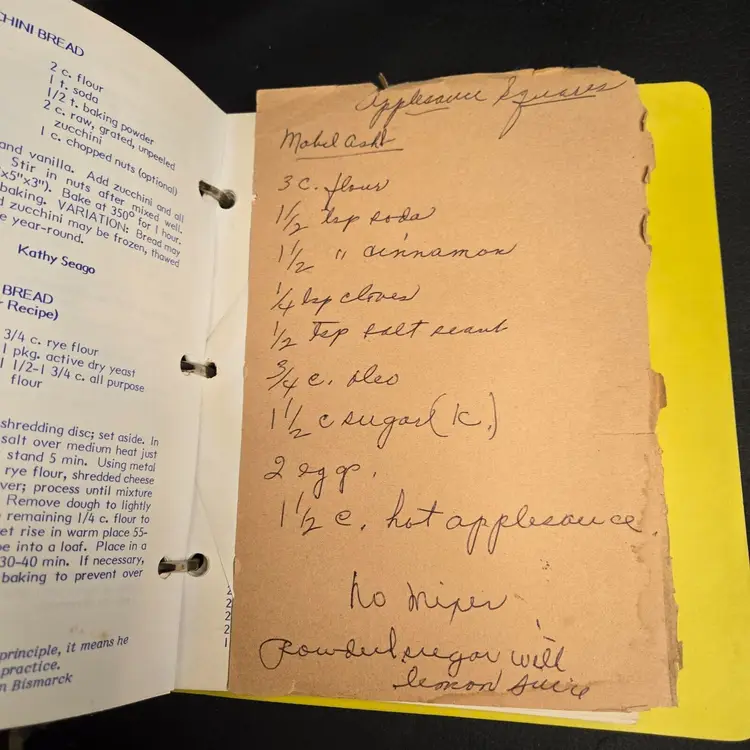 CHINI BREAD
2 c. flour
1 t. soda
1/2 t. baking powder
2 c. raw, grated, unpeeled
zucchini
1 c. chopped nuts (optional)
and vanilla. Add zucchini and all
Stir in nuts after mixed well.
x5"x3"). Bake at 350° for 1 hour.
baking. VARIATION: Bread may
d zucchini may be frozen, thawed
e year-round.
Kathy Seago
BREAD
r Recipe)
3/4 c. rye flour
1 pkg. active dry yeast
1 1/2-1 3/4 c. all purpose
flour
shredding disc; set aside. In
salt over medium heat just
stand 5 min. Using metal
rye flour, shredded cheese
ver; process until mixture
Remove dough to lightly
remaining 1/4 c. flour to
et rise in warm place 55-
be into a loaf. Place in a
30-40 min. If necessary,
baking to prevent over
principle, it means he
practice.
n Bismarck
Applesauce Squares
Mabel Ash
3 c. flour
1 1/2 tsp soda
1 1/2 " cinnamon
1/4 tsp cloves
1/2 tsp salt scant
3/4 c. oleo
1 1/2 c sugar (1c.)
2 eggs.
1 1/2 c. hot applesauce.
No mixer
Powdered sugar with
lemon juice
2
2
2
2
1